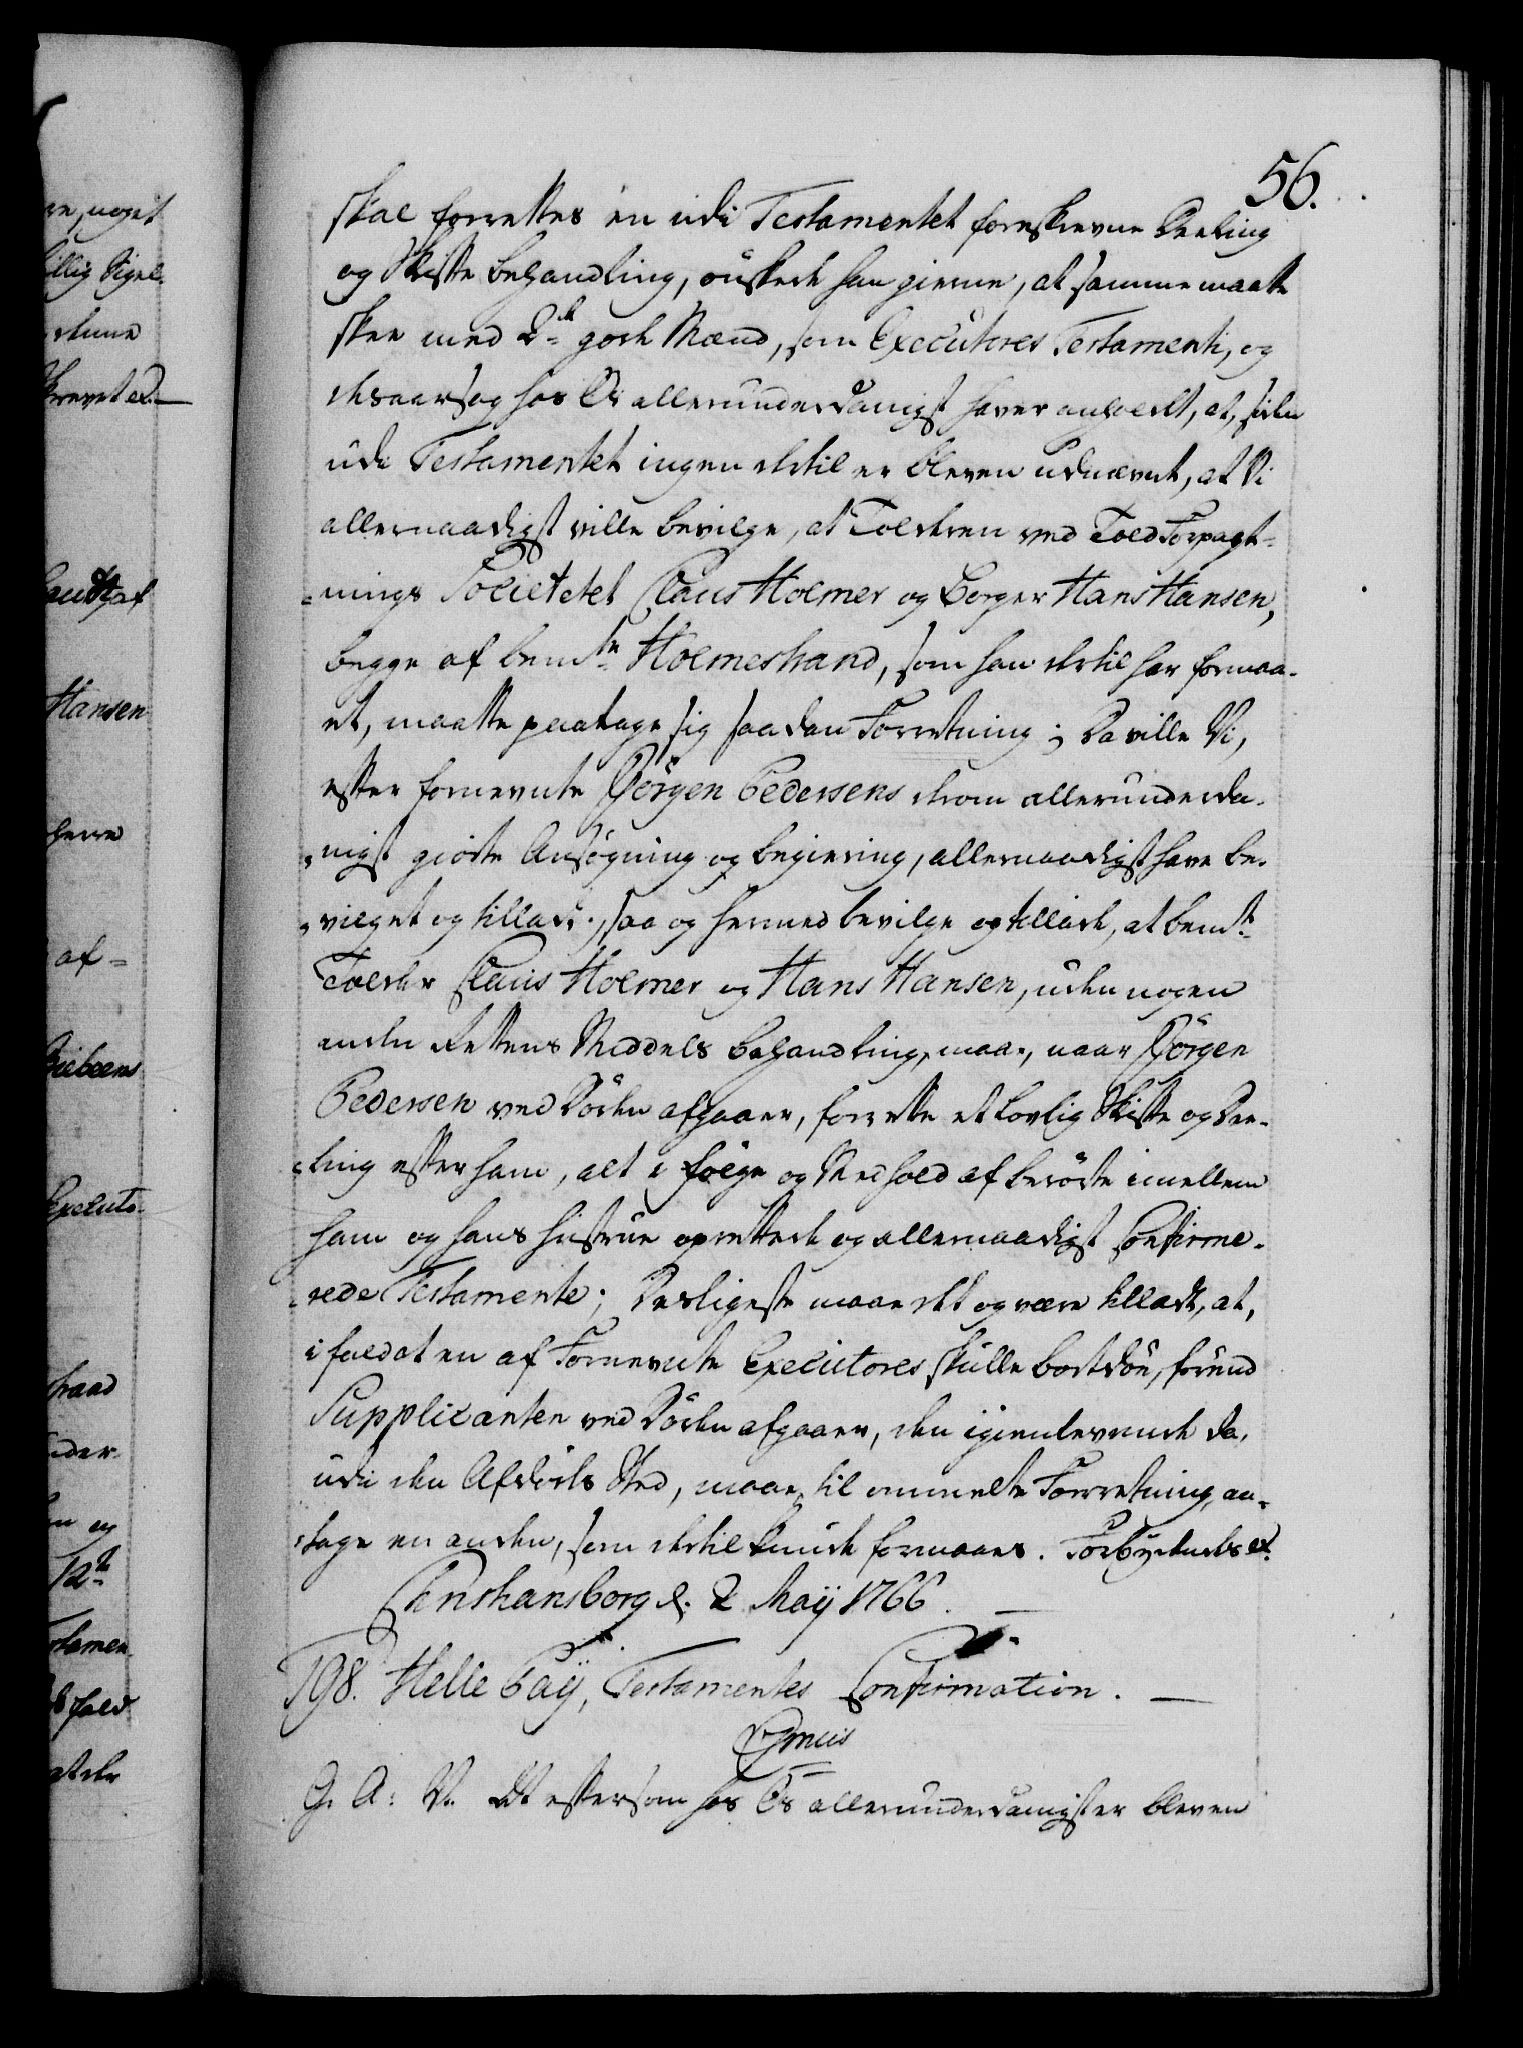 56.
skal forrettes en udi Testamentet foreskreven Deeling
og Skifte behandling, önskede han gierne, at samme maatte
skee med 2de gode Mænd, som Executores Testamenti, og
desaarsag hos Os allerunderdanigst haver anholdt, at, siden
udi Testamentet ingen dertil er bleven udnævnt, at Vi
allernaadigst ville bevilge, at Tolderen ved Told Forpagt-
nings Societetet Claus Holmer og Borger Hans Hansen,
begge af bemte Holmestrand, som han dertil har formaa-
et, maatte paatage sig saadan Forretning; Da ville Vi,
efter fornevnte Jörgen Pedersens derom allerunderda-
nigst giorte Ansögning og begiering, allernaadigst have be-
vilget og tilladt, saa og hermed bevilge og tillade, at bemte
Tolder Claus Holmer og Hans Hansen, uden nogen
anden Rettens Middels behandling, maae, naar Jörgen
Pedersen ved Döden afgaaer, forrette et lovlig Skifte og Dee-
ling efter ham, alt i fölge og Medhold af berörte imellem
ham og hans hustrue oprettede og allernaadigst Confirme-
rede Testamente; Desligeste maae det og være tilladt, at,
ifald at en af Fornevnte Executores skulle bortdöe, forend
Supplicanten ved Döden afgaaer, den igienlevende da,
udi den Afdödes Sted, maae til ommelte Forretning, an-
tage en anden, som dertil kunde formaaes. Forbydendes etc.
Christiansborg d. 2 Maij 1766.
198. Helle Paÿ, Testamentes Confirmation.
G. A: V. At eftersom hos Os allerunderdanigst er bleven
re, noget
Hansen
af-
Executo-
der-
en og
12te